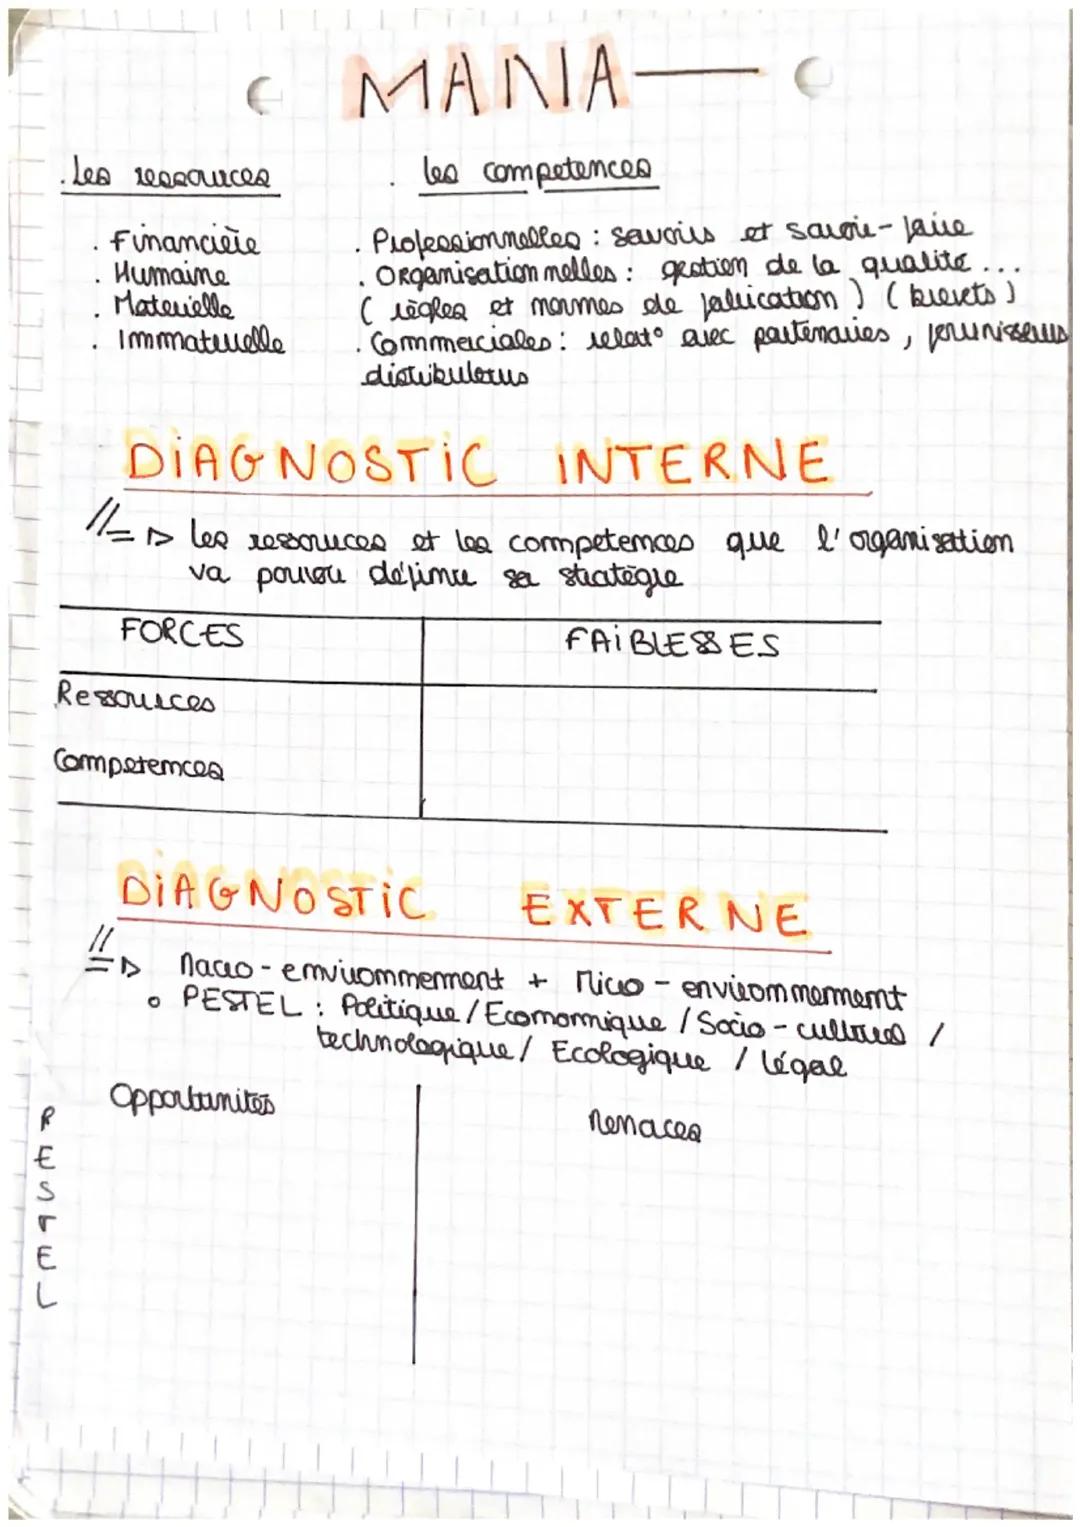 MANA
. Les ressources
. les competences
. Financière
. Humaine
. Materielle
. Immaterielle
. Professionnelles : savoirs et savoir-faire
. Organisationnelles : gestion de la qualité ...
( règles et normes de fabrication ) ( brevets )
. Commerciales : relat° avec partenaires, fournisseurs
distributeurs
DIAGNOSTIC INTERNE
//=> les ressources et les competences que l'organisation
va pouvoir définir sa stratégie
FORCES
FAIBLESSES
Ressources
Competences
DIAGNOSTIC EXTERNE
//=> Macro-environnement + Micro-environnement
° PESTEL : Politique / Economique / Socio-culturel /
technologique / Ecologique / légal
Opportunités
Menaces
P
E
S
T
E
L